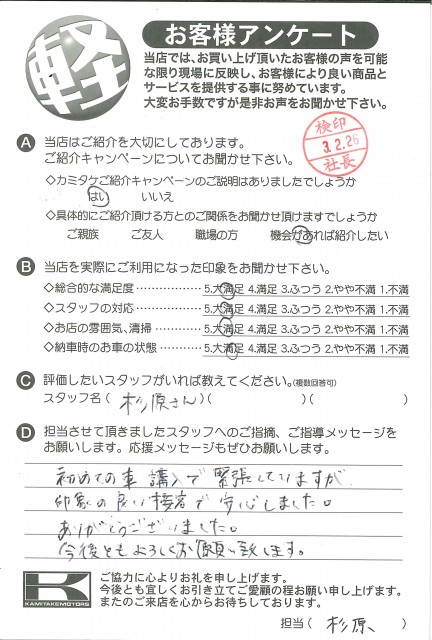 軽
お客様アンケート
当店では、お買い上げ頂いたお客様の声を可能
な限り現場に反映し、お客様により良い商品と
サービスを提供する事に努めています。
大変お手数ですが是非お声をお聞かせ下さい。
検印
3.2.26
社長
A 当店はご紹介を大切にしております。
ご紹介キャンペーンについてお聞かせ下さい。
◇カミタケご紹介キャンペーンのご説明はありましたでしょうか
はい いいえ
◇具体的にご紹介頂ける方とのご関係をお聞かせ頂けますでしょうか
ご親族 ご友人 職場の方 機会があれば紹介したい
B 当店を実際にご利用になった印象をお聞かせ下さい。
◇総合的な満足度・・・・・・・・・・・・・・ 5.大満足 4.満足 3.ふつう 2.やや不満 1.不満
◇スタッフの対応・・・・・・・・・・・・・・ 5.大満足 4.満足 3.ふつう 2.やや不満 1.不満
◇お店の雰囲気、清掃・・・・・・・・・・ 5.大満足 4.満足 3.ふつう 2.やや不満 1.不満
◇納車時のお車の状態・・・・・・・・・・ 5.大満足 4.満足 3.ふつう 2.やや不満 1.不満
C 評価したいスタッフがいれば教えてください。(複数回答可)
スタッフ名( 杉原さん )( )( )
D 担当させて頂きましたスタッフへのご指摘、ご指導メッセージを
お願いします。応援メッセージもぜひお願いします。
初めての車購入で緊張していますが
印象の良い接客で安心しました。
ありがとうございました。
今後ともよろしくお願い致します。
K
KAMITAKE MOTORS
ご協力に心よりお礼を申し上げます。
今後とも宜しくお引き立てご愛顧の程お願い申し上げます。
またのご来店を心からお待ちしております。
担当( 杉原 )